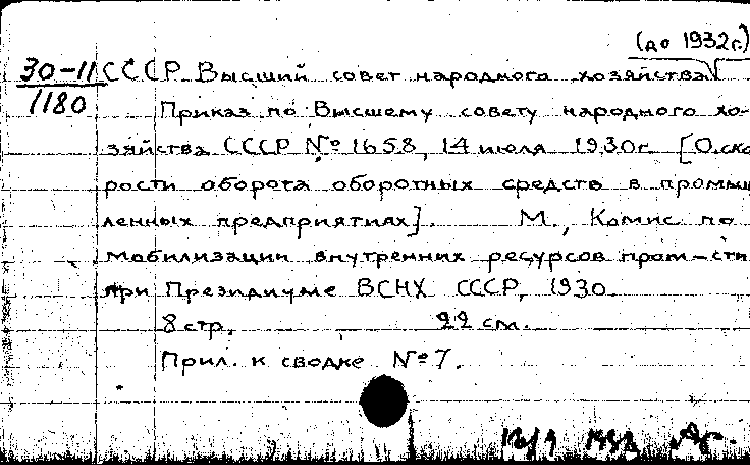 (до 1932г.)
30-11 СССР. Высший совет народного хозяйства
1180 Приказ по Высшему совету народного хо-
зяйства СССР № 1658, 14 июля 1930г. [О ско
рости оборота оборотных средств в промыш
ленных предприятиях]. М., Комис по
мобилизации внутренних ресурсов пром-сти
при Президиуме ВСНХ СССР, 1930.
8 стр. 22 см.
Прил. к сводке № 7.